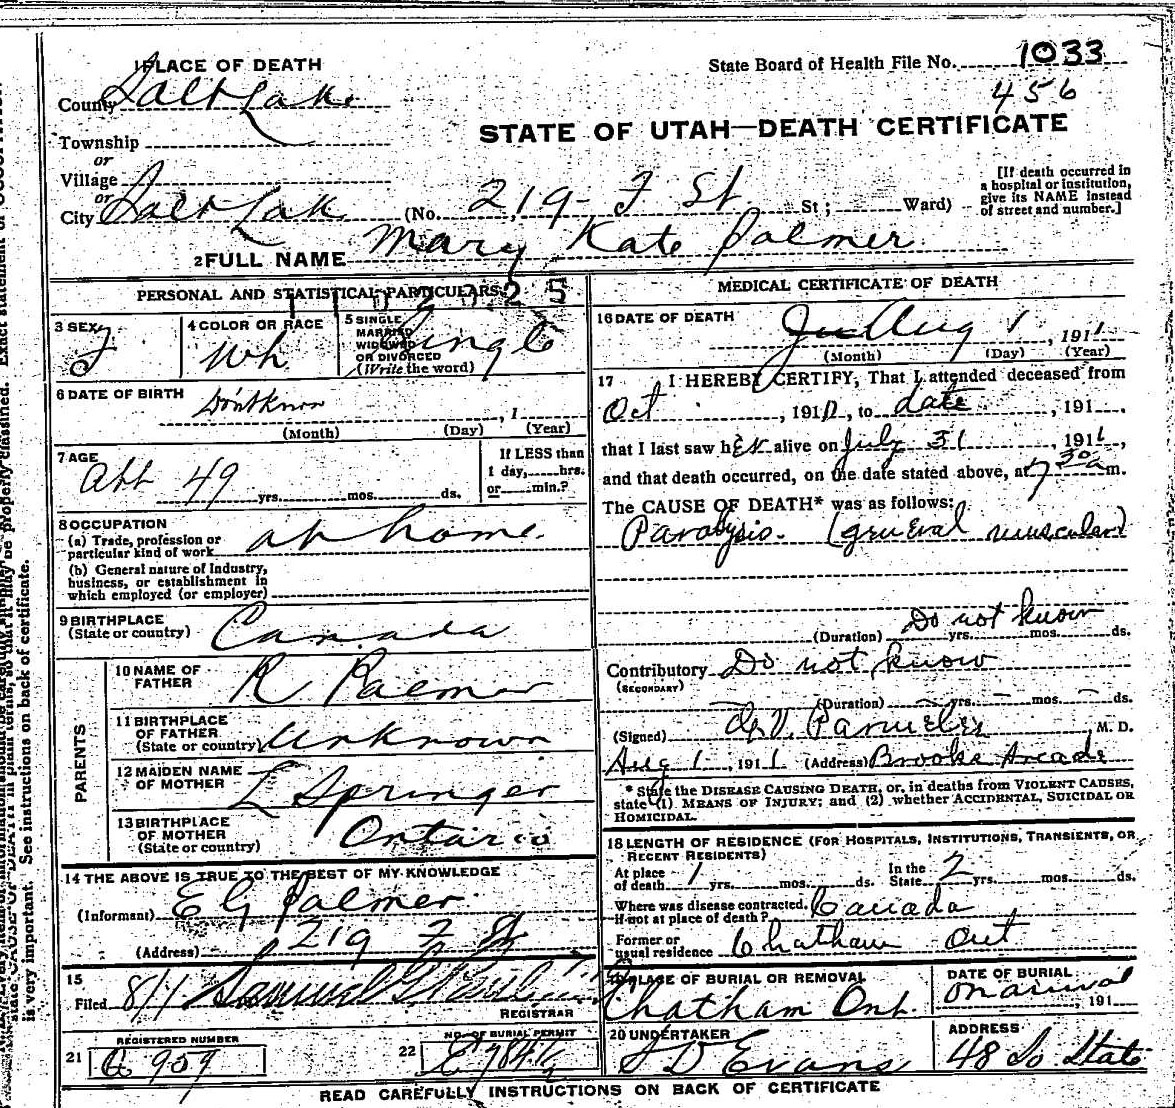 1 PLACE OF DEATH
State Board of Health File No. 1033
County Salt Lake
456
STATE OF UTAH—DEATH CERTIFICATE
Township
or
Village
or
City Salt Lake (No. 219- F St St; Ward)
[If death occurred in a hospital or institution, give its NAME instead of street and number.]
2 FULL NAME Mary Kate Palmer
PERSONAL AND STATISTICAL PARTICULARS
3 SEX F
4 COLOR OR RACE Wh
5 SINGLE MARRIED WIDOWED OR DIVORCED (Write the word) Single
6 DATE OF BIRTH Don't Know , 1
(Month) (Day) (Year)
7 AGE Abt 49 yrs. mos. ds.
If LESS than 1 day, hrs. or min.?
8 OCCUPATION
(a) Trade, profession or particular kind of work at home.
(b) General nature of Industry, business, or establishment in which employed (or employer)
9 BIRTHPLACE (State or country) Canada
PARENTS
10 NAME OF FATHER R Palmer
11 BIRTHPLACE OF FATHER (State or country) Unknown
12 MAIDEN NAME OF MOTHER L Springer
13 BIRTHPLACE OF MOTHER (State or country) Ontario
14 THE ABOVE IS TRUE TO THE BEST OF MY KNOWLEDGE
(Informant) E G Palmer
(Address) 219 F St
15
Filed 8/1 Samuel G
REGISTRAR
REGISTERED NUMBER
21 959
NO. OF BURIAL PERMIT
22
MEDICAL CERTIFICATE OF DEATH
16 DATE OF DEATH Aug 1 , 1911
(Month) (Day) (Year)
17 I HEREBY CERTIFY, That I attended deceased from
Oct , 1910, to date , 191 .
that I last saw her alive on July 31 , 1911,
and that death occurred, on the date stated above, at 7 30 a m.
The CAUSE OF DEATH* was as follows:
Paralysis. (general muscular)
(Duration) Do not know yrs. mos. ds.
Contributory Do not know
(SECONDARY)
(Duration) yrs. mos. ds.
(Signed) M. D.
Aug 1 , 1911 (Address) Brooks Arcade
* State the DISEASE CAUSING DEATH, or, in deaths from VIOLENT CAUSES, state (1) MEANS OF INJURY; and (2) whether ACCIDENTAL, SUICIDAL OR HOMICIDAL.
18 LENGTH OF RESIDENCE (FOR HOSPITALS, INSTITUTIONS, TRANSIENTS, OR RECENT RESIDENTS)
At place of death 1 yrs. mos. ds. In the State 2 yrs. mos. ds.
Where was disease contracted. If not at place of death? Canada
Former or usual residence Chatham Ont
19 PLACE OF BURIAL OR REMOVAL Chatham Ont.
DATE OF BURIAL On arrival , 191
20 UNDERTAKER S D Evans
ADDRESS 48 So State
READ CAREFULLY INSTRUCTIONS ON BACK OF CERTIFICATE
is very important. See instructions on back of certificate.